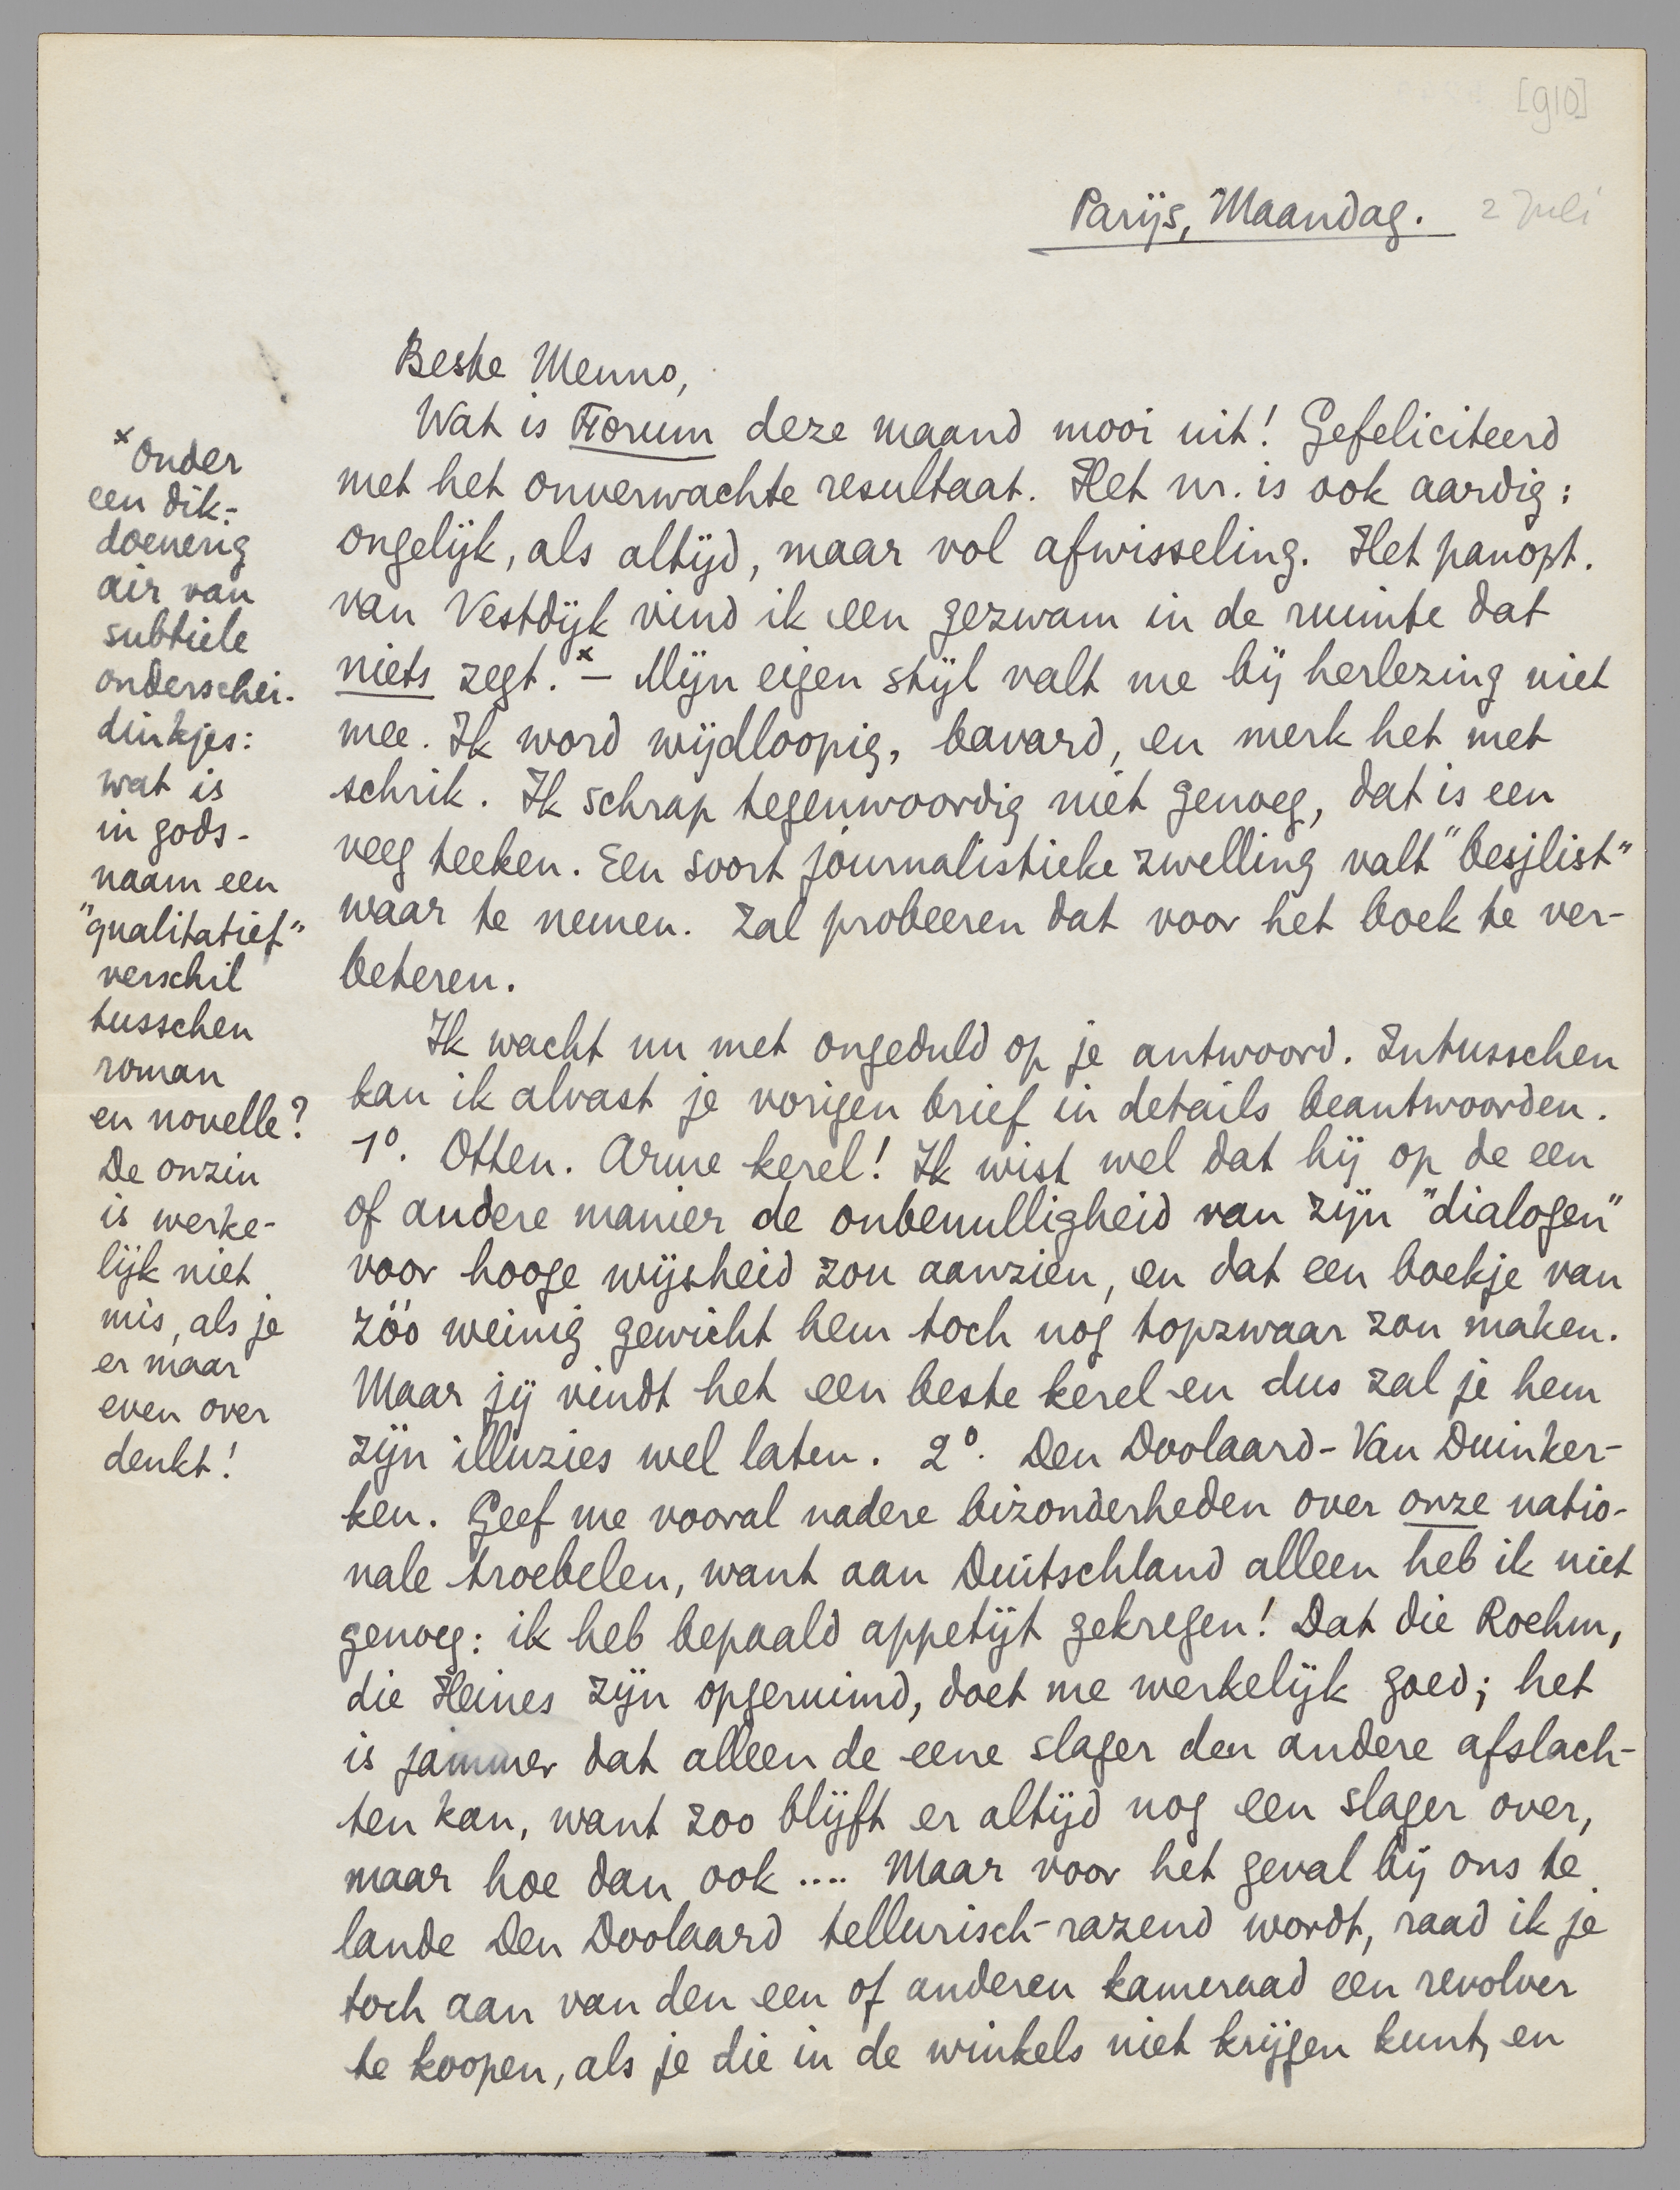 [910]
Parijs, Maandag. 2 Juli
Beste Menno,
Wat is Forum deze maand mooi uit! Gefeliciteerd
met het onverwachte resultaat. Het nr. is ook aardig:
ongelijk, als altijd, maar vol afwisseling. Het panopt.
van Vestdijk vind ik een gezwam in de ruimte dat
niets zegt.x — Mijn eigen stijl valt me bij herlezing niet
mee. Ik word wijdloopig, bavard, en merk het met
schrik. Ik schrap tegenwoordig niet genoeg, dat is een
veeg teeken. Een soort journalistieke zwelling valt "besjlist"
waar te nemen. Zal probeeren dat voor het boek te ver-
beteren.
Ik wacht nu met ongeduld op je antwoord. Intusschen
kan ik alvast je vorigen brief in details beantwoorden.
1º. Otten. Arme kerel! Ik wist wel dat hij op de een
of andere manier de onbenulligheid van zijn "dialogen"
voor hooge wijsheid zou aanzien, en dat een boekje van
zóó weinig gewicht hem toch nog topzwaar zou maken.
Maar jij vindt het een beste kerel en dus zal je hem
zijn illuzies wel laten. 2º. Den Doolaard - Van Duinker-
ken. Geef me vooral nadere bizonderheden over onze natio-
nale troebelen, want aan Duitschland alleen heb ik niet
genoeg: ik heb bepaald appetijt gekregen! Dat die Roehm,
die Heines zijn opgeruimd, doet me werkelijk goed; het
is jammer dat alleen de eene slager den andere afslach-
ten kan, want zoo blijft er altijd nog een slager over,
maar hoe dan ook .... Maar voor het geval bij ons te
lande Den Doolaard tellurisch-razend wordt, raad ik je
toch aan van den een of anderen kameraad een revolver
te koopen, als je die in de winkels niet krijgen kunt, en
x Onder
een dik-
doenerig
air van
subtiele
onderschei-
dinkjes:
wat is
in gods-
naam een
"qualitatief"
verschil
tusschen
roman
en novelle?
De onzin
is werke-
lijk niet
mis, als je
er maar
even over
denkt!